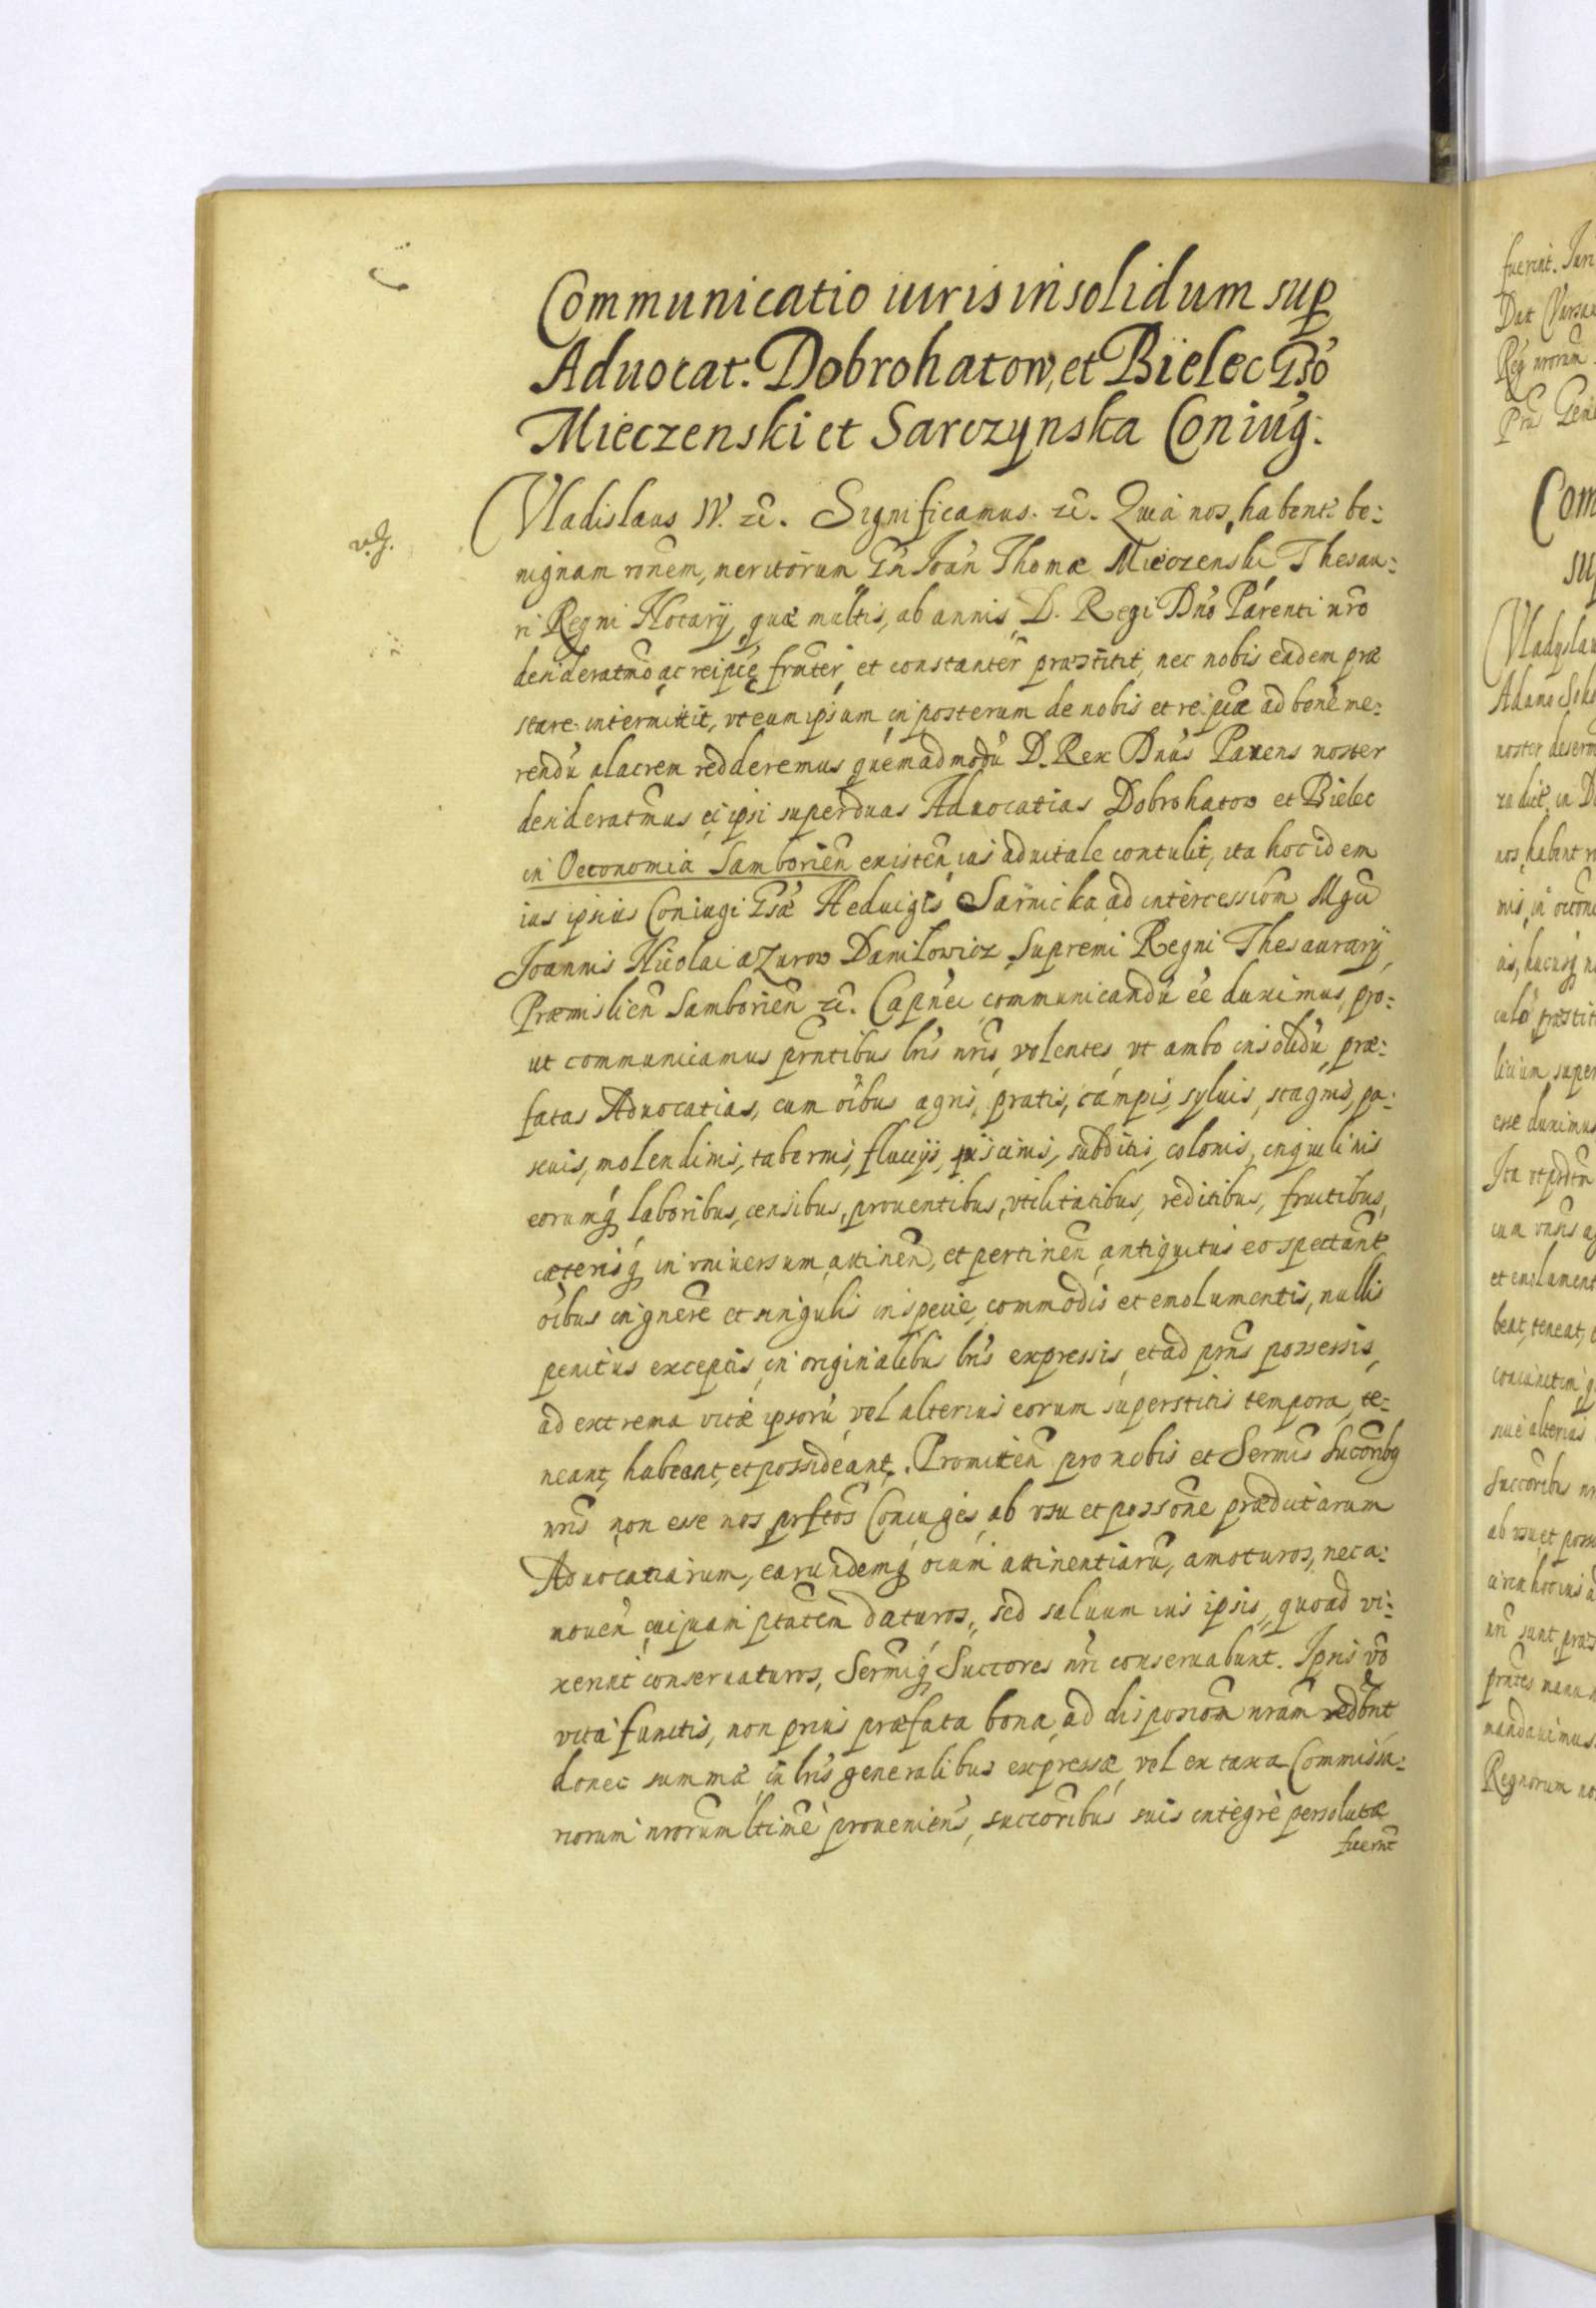 Communicatio iuris in solidum sup
Aduocat. Dobrohatow, et Bielec Gso
Mieczenski et Sarczynska Coniug:
Vladislaus IV. etc. Significamus. etc. Quia nos, habent be:
v.J.
nignam ronem, meritorum Gn Ioan Thomæ Mieczenski Thesau:
ri Regni Notarij, quæ multis, ab annis, D. Regi Dno Parenti nro
desideratmo ac reipcę frmter, et constanter præstitit, nec nobis eadem præ
stare intermittit, vt eum ipsum in posterum de nobis et reipca ad bene me:
rendu alacrem redderemus quemadmodu D. Rex Dnus Parens noster
desideratmus ei ipsi super duas Aduocatias Dobrohatow et Bielec
in Oeconomia Samborien existen, ius aduitale contulit, ita hoc idem
ius ipsius Coniugi Gsæ Heduigis Sarnicka ad intercessiom Mgci
Joannis Nicolai a Zurow Danilowicz Supremi Regni Thesaurarij,
Præmislien Samborien etc. Capnei communicandu ee duximus, pro:
ut communicamus prntibus lris nris, volentes, vt ambo in solidu præ:
fatas Aduocatias, cum oibus agris, pratis, campis, syluis, stagnis, pa:
scuis, molendinis, tabernis, fluuijs, piscinis, subditis, colonis, inquilinis
eorumq laboribus, censibus, prouentibus, vtilitatibus, reditibus, fructibus,
cæterisq in vniuersum attinen, et pertinen antiquitus eo spectant
oibus in gnere et singulis in specie, commodis et emolumentis, nullis
penitus exceptis, in originalibus lris expressis, et ad prns possessis,
ad extrema vitæ ipsoru, vel alterius eorum superstitis tempora, te:
neant, habeant, et possideant. Promitten pro nobis et Sermis Succoribq
nris non esse nos prftos Coniuges, ab vsu et possone prædictarum
Aduocatiarum, earundemq oium attinentiaru, amoturos, nec a:
mouen cuipiam ptatem daturos, sed saluum ius ipsis, quoad vi:
xerint conseruaturos, Sermiq Succores nri conseruabunt. Ipsis vo
vita functis, non prius præfata bona, ad disposiom nram redbnt
donec summæ in lris generalibus expressæ, vel ex taxa Commissa:
riorum nrorum ltime proueniens, succoribus suis integre persolutæ
fuerint